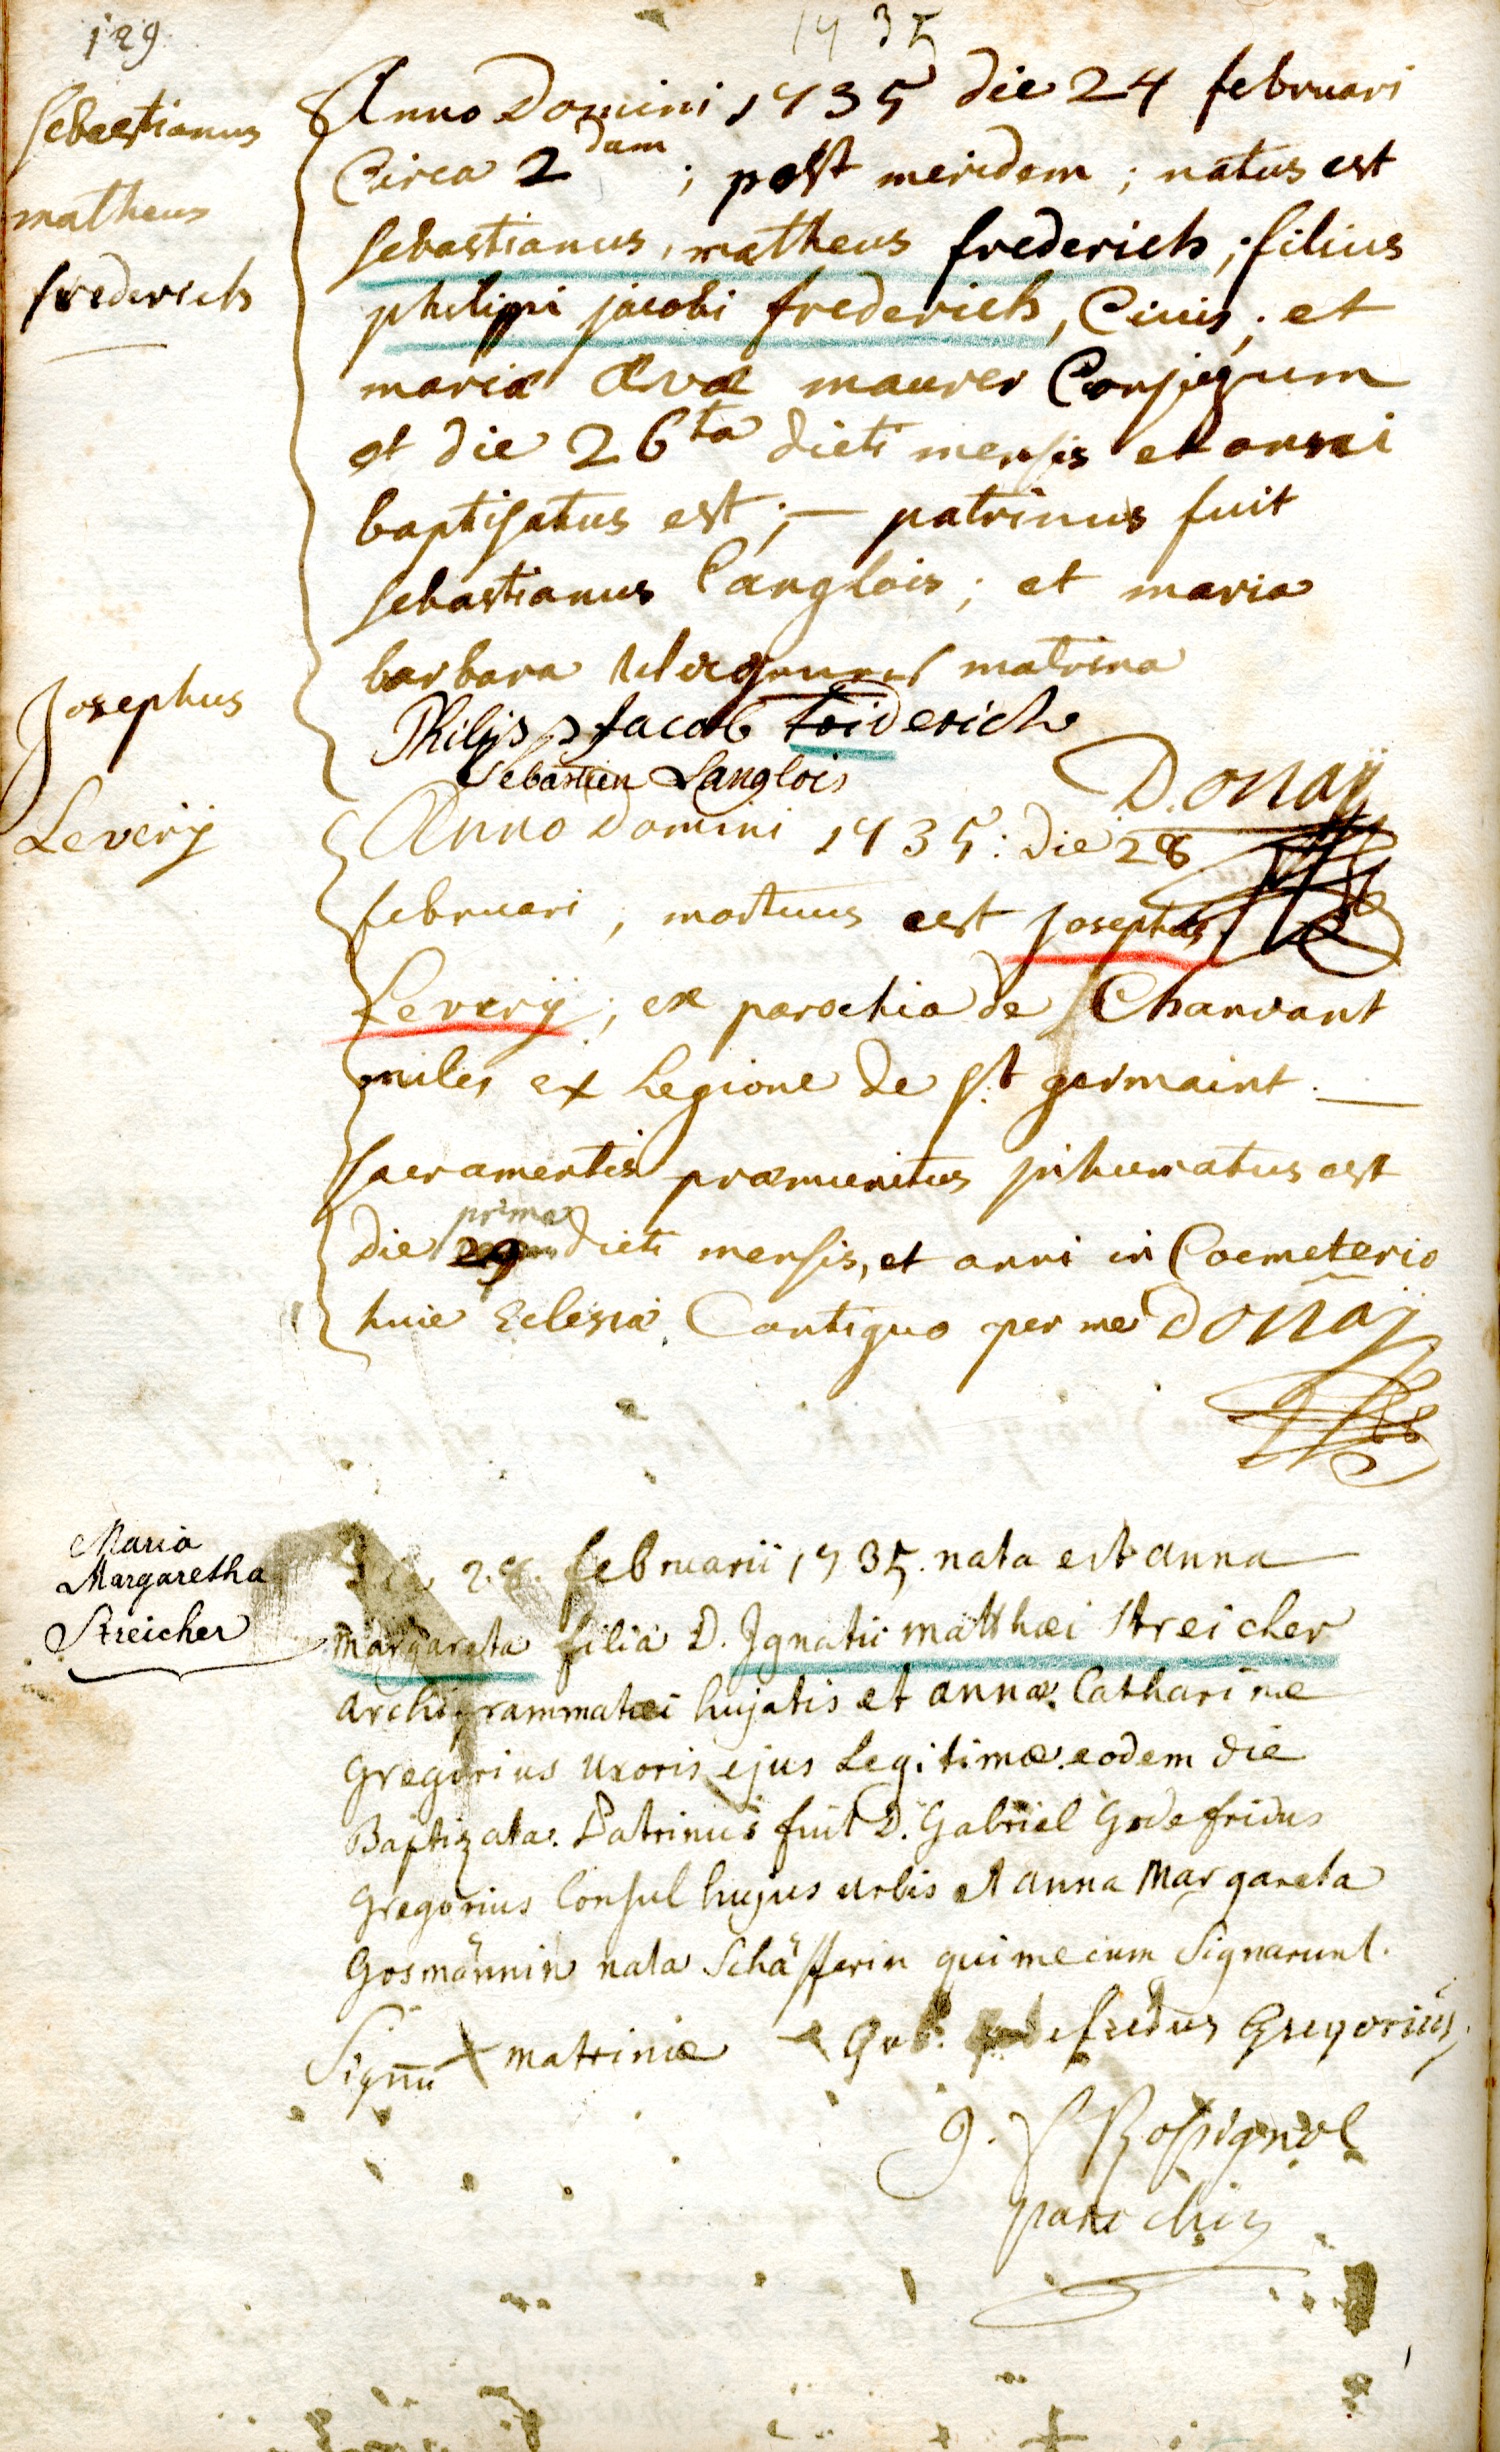 129
1735
Sebastianus
matheus
frederich
Anno Domini 1735 die 24 februari
Circa 2dam ; post meridem ; natus est
sebastianus, matheus frederich, ; filius
philippi jacobi frederich, Civis, ; et
mariæ Ævæ maurer Conjugum
et die 26ta dicti mensis et anni
baptisatus est ; — patrinus fuit
sebastianus Langlois ; et maria
barbara matrina
Philipp Jacob friderich
Sebastien Langlois
Donaÿ
Josephus
Leverÿ
Anno Domini 1735 : die 28
februari ; mortuus est Josephus
Leverÿ ; ex parochia de Charvant
miles ex Legione de St germaint . —
sacramentis præmunitus inhumatus est
prima
die 29 dicti mensis, et anni in Coemeterio
huic Eclesiæ Contiguo per me Donaÿ
Maria
Margaretha
Streicher
Die 28. februarii 1735. nata est anna
Margareta filia D. Ignatii matthæi Streicher
archigrammatæi hujatis et annæ Catharinæ
Gregorius uxoris ejus Legitimæ. eodem die
Baptizata. Patrinus fuit D. Gabriel Godefridus
Gregorius Consul hujus urbis et anna Margareta
Gosmännin nata Schäfferin qui mecum signarunt.
Signū + matrinæ Gab. godefridus Gregoriús.
J. f Rossignol
parochus